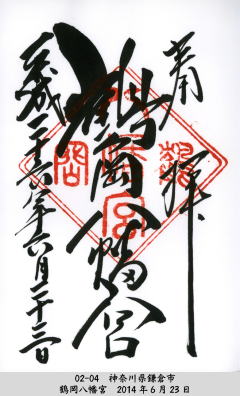 奉拝
鶴岡八幡宮
平成二十六年六月二十三日
02-04 神奈川県鎌倉市
鶴岡八幡宮 2014年6月23日